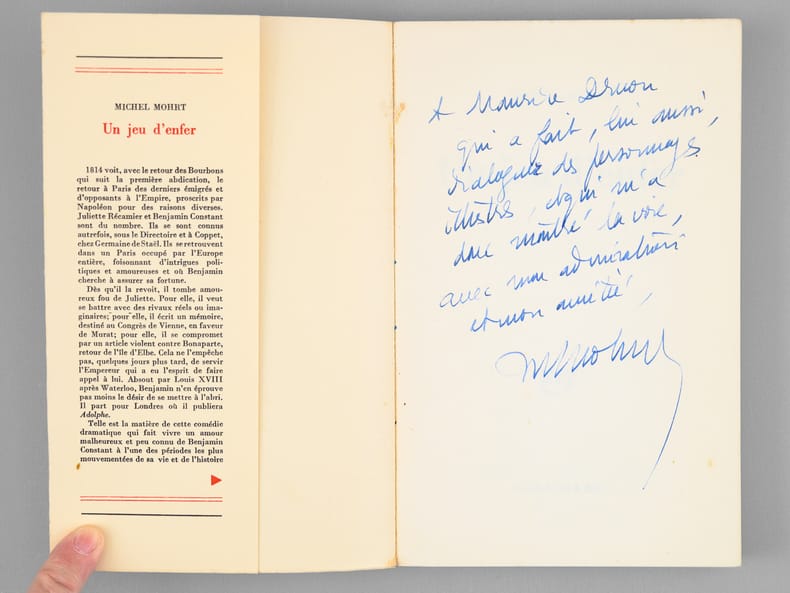 MICHEL MOHRT
Un jeu d'enfer
1814 voit, avec le retour des Bourbons
qui suit la première abdication, le
retour à Paris des derniers émigrés et
d'opposants à l'Empire, proscrits par
Napoléon pour des raisons diverses.
Juliette Récamier et Benjamin Constant
sont du nombre. Ils se sont connus
autrefois, sous le Directoire et à Coppet,
chez Germaine de Staël. Ils se retrouvent
dans un Paris occupé par l'Europe
entière, foisonnant d'intrigues poli-
tiques et amoureuses et où Benjamin
cherche à assurer sa fortune.
Dès qu'il la revoit, il tombe amou-
reux fou de Juliette. Pour elle, il veut
se battre avec des rivaux réels ou ima-
ginaires; pour elle, il écrit un mémoire,
destiné au Congrès de Vienne, en faveur
de Murat; pour elle, il se compromet
par un article violent contre Bonaparte,
retour de l'île d'Elbe. Cela ne l'empêche
pas, quelques jours plus tard, de servir
l'Empereur qui a eu l'esprit de faire
appel à lui. Absout par Louis XVIII
après Waterloo, Benjamin n'en éprouve
pas moins le désir de se mettre à l'abri.
Il part pour Londres où il publiera
Adolphe.
Telle est la matière de cette comédie
dramatique qui fait vivre un amour
malheureux et peu connu de Benjamin
Constant à l'une des périodes les plus
mouvementées de sa vie et de l'histoire
A Maurice Druon
qui a fait, lui aussi,
dialoguer des personnages
illustres, et qui m'a
donc montré la voie,
avec mon admiration
et mon amitié,
MMohrt